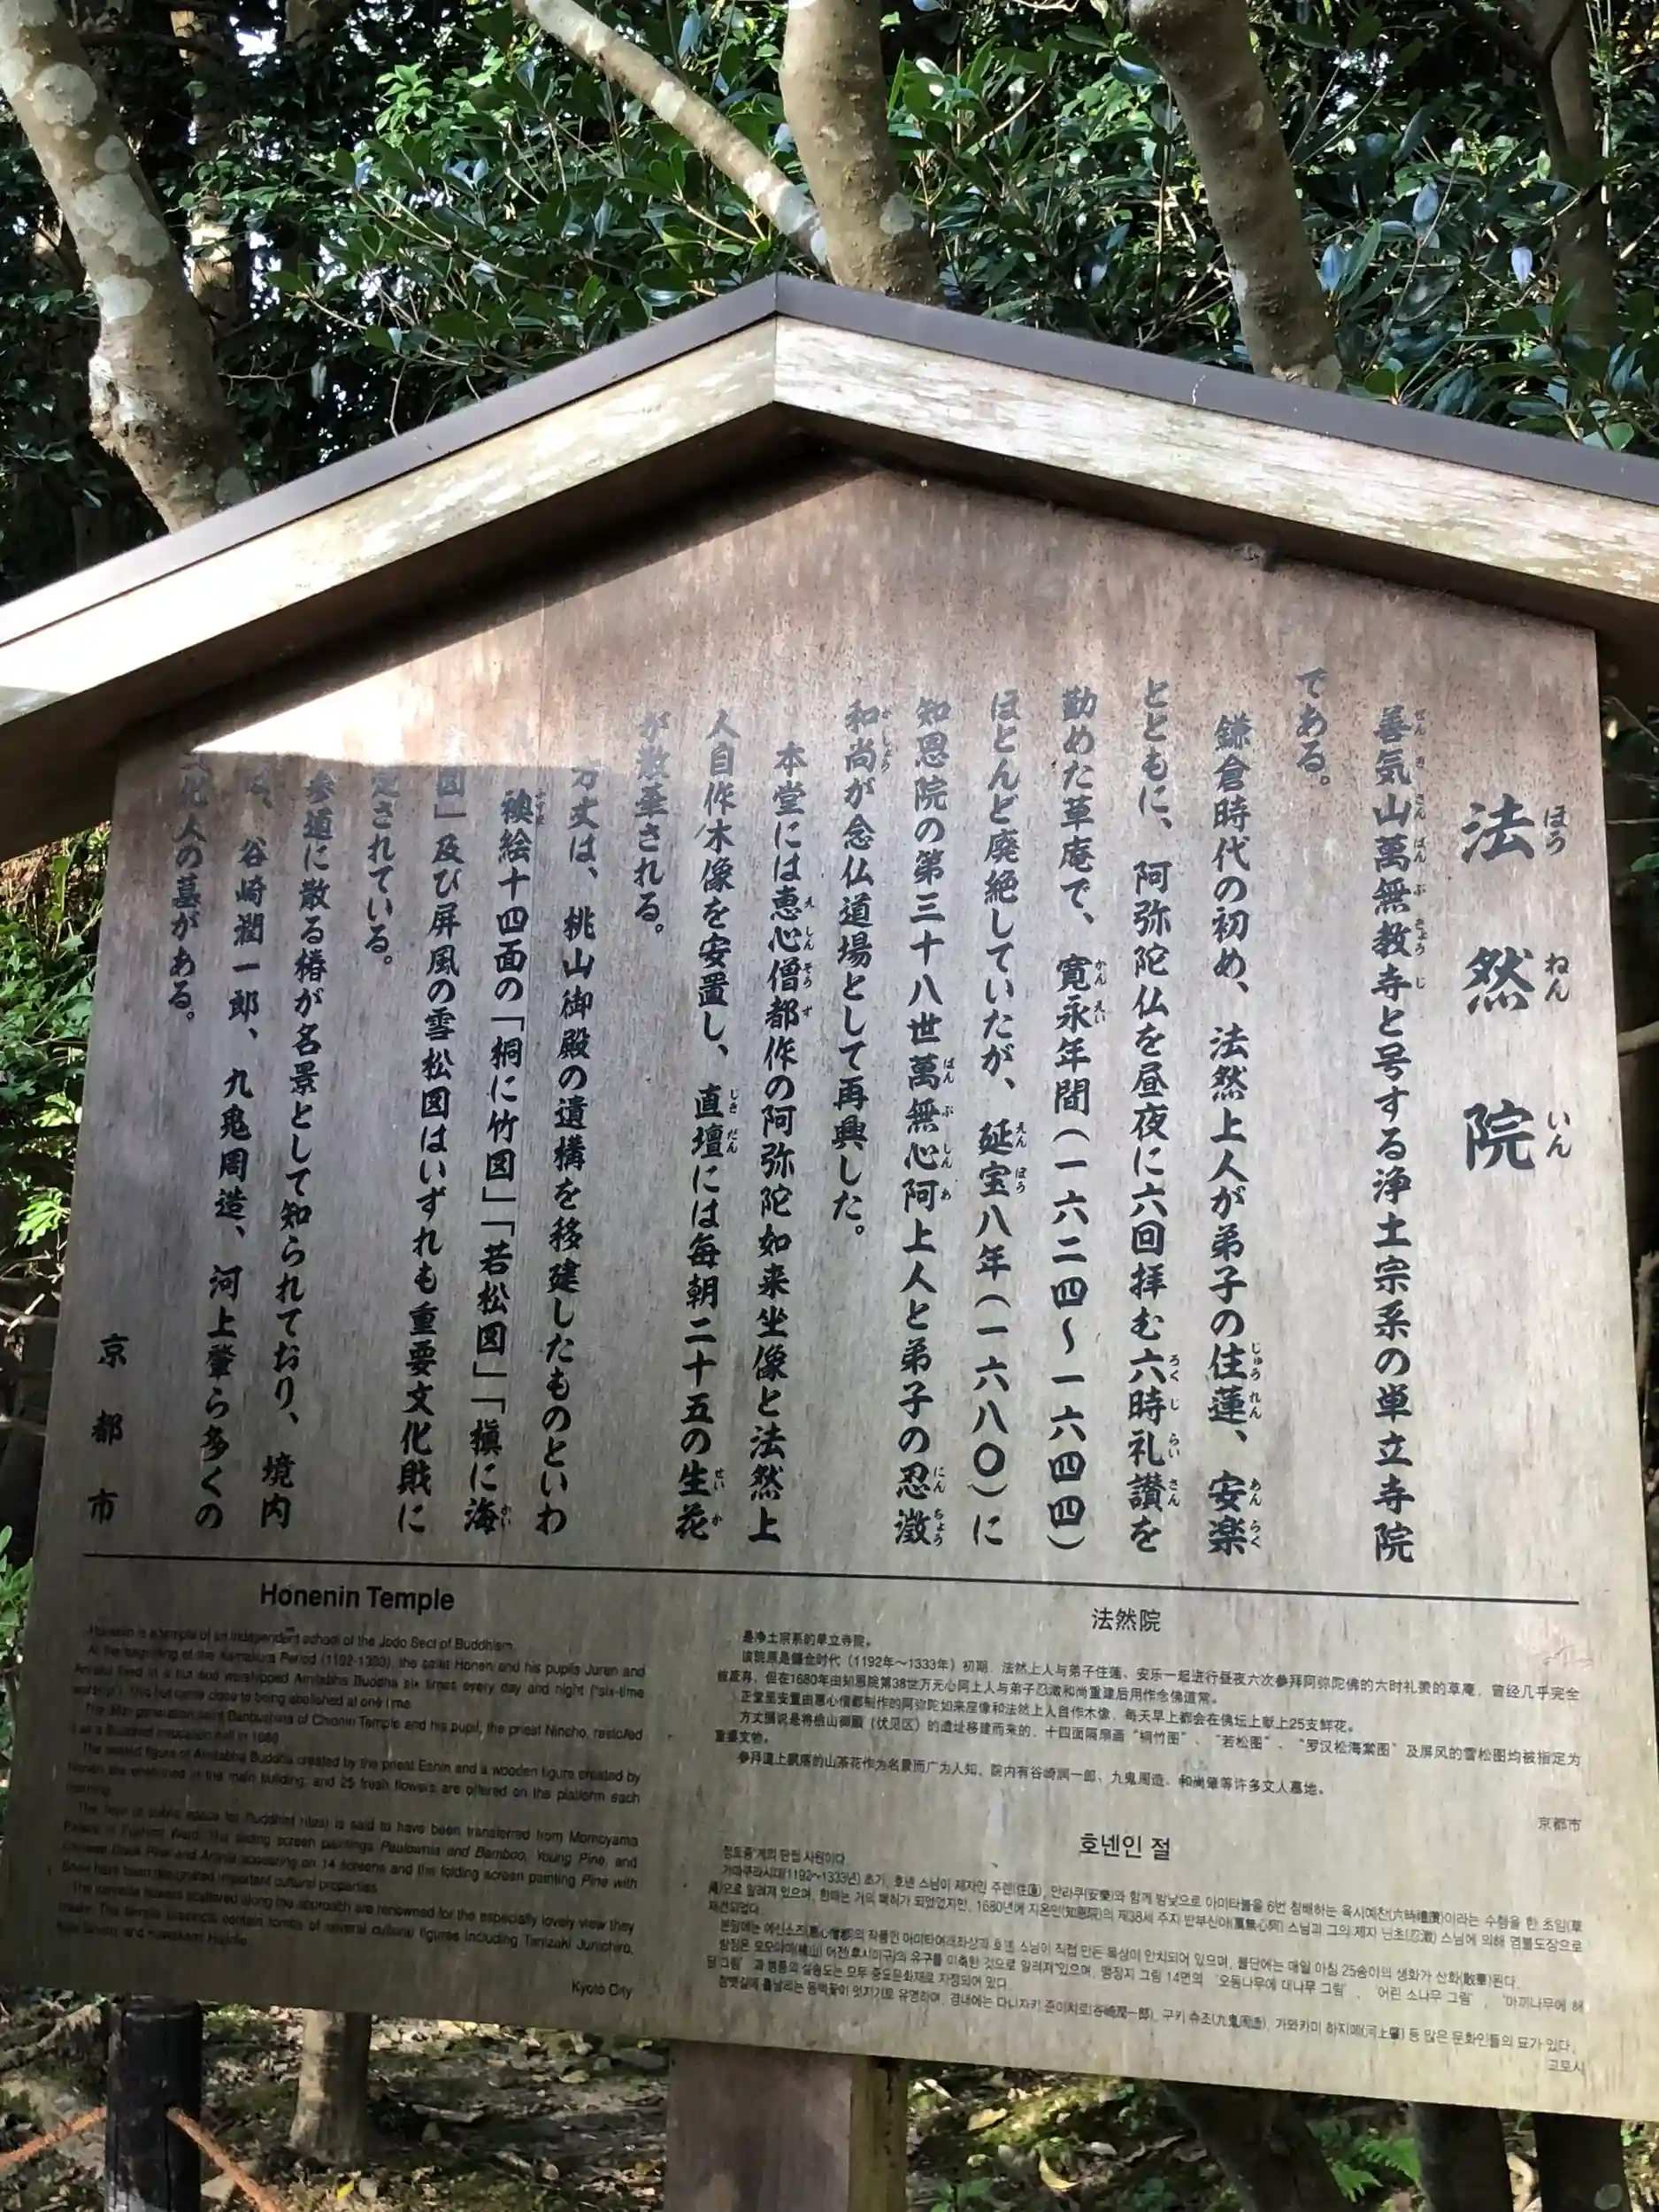 法然院
善気山萬無教寺と号する浄土宗系の単立寺院
である。
鎌倉時代の初め、法然上人が弟子の住蓮、安楽
とともに、阿弥陀仏を昼夜に六回拝む六時礼讃を
勤めた草庵で、寛永年間(一六二四~一六四四)
ほとんど廃絶していたが、延宝八年(一六八〇)に
知恩院の第三十八世萬無心阿上人と弟子の忍澂
和尚が念仏道場として再興した。
本堂には恵心僧都作の阿弥陀如来坐像と法然上
人自作木像を安置し、直壇には毎朝二十五の生花
が散華される。
方丈は、桃山御殿の遺構を移建したものといわ
襖絵十四面の「桐に竹図」「若松図」「槇に海
図」及び屏風の雪松図はいずれも重要文化財に
定されている。
参道に散る椿が名景として知られており、境内
は、谷崎潤一郎、九鬼周造、河上肇ら多くの
文化人の墓がある。
京都市
Honenin Temple
Honenin is a temple of an independent school of the Jodo Sect of Buddhism.
At the beginning of the Kamakura Period (1192-1333), the saint Honen and his pupils Juren and
Anraku lived in a hut and worshipped Amitabha Buddha six times every day and night ("six-time
worship"). This hut came close to being abolished at one time.
The 38th generation saint Banbushina of Chionin Temple and his pupil, the priest Nincho, restored
it as a Buddhist invocation hall in 1680.
The seated figure of Amitabha Buddha created by the priest Eshin and a wooden figure created by
Honen are enshrined in the main building, and 25 fresh flowers are offered on the platform each
morning.
The hojo (a public space for Buddhist rites) is said to have been transferred from Momoyama
Palace in Fushimi Ward. The sliding screen paintings Paulownia and Bamboo, Young Pine, and
Chinese Black Pine and Aronia appearing on 14 screens and the folding screen painting Pine with
Snow have been designated important cultural properties.
The camellia flowers scattered along the approach are renowned for the especially lovely view they
create. The temple precincts contain tombs of several cultural figures including Tanizaki Junichiro,
Kuki Shuzo, and Kawakami Hajime.
Kyoto City
法然院
是净土宗系的单立寺院。
该院原是镰仓时代(1192年~1333年)初期,法然上人与弟子住莲、安乐一起进行昼夜六次参拜阿弥陀佛的六时礼赞的草庵,曾经几乎完全
被废弃,但在1680年由知恩院第38世万无心阿上人与弟子忍澂和尚重建后用作念佛道常。
正堂里安置由惠心僧都制作的阿弥陀如来座像和法然上人自作木像,每天早上都会在佛坛上献上25支鲜花。
方丈据说是将桃山御殿(伏见区)的遗址移建而来的,十四面隔扇画“桐竹图”、“若松图”、“罗汉松海棠图”及屏风的雪松图均被指定为
重要文物。
参拜道上飘落的山茶花作为名景而广为人知,院内有谷崎润一郎、九鬼周造、和尚肇等许多文人墓地。
京都市
호넨인 절
정토종계의 단립 사원이다.
가마쿠라시대(1192~1333년) 초기, 호넨 스님이 제자인 주렌(住蓮), 안라쿠(安樂)와 함께 밤낮으로 아미타불을 6번 참배하는 육시예찬(六時禮讚)이라는 수행을 한 초암(草
庵)으로 알려져 있으며, 한때는 거의 폐허가 되었었지만, 1680년에 지온인(知恩院)의 제38세 주지 반부신아(萬無心阿) 스님과 그의 제자 닌초(忍澂) 스님에 의해 염불도장으로
재건되었다.
본당에는 에신소즈(惠心僧都)의 작품인 아미타여래좌상과 호넨 스님이 직접 만든 목상이 안치되어 있으며, 불단에는 매일 아침 25송이의 생화가 산화(散華)된다.
방장은 모모야마(桃山) 어전(후시미구)의 유구를 이축한 것으로 알려져 있으며, 맹장지 그림 14면의 ‘오동나무에 대나무 그림’, ‘어린 소나무 그림’, ‘마끼나무에 해
당 그림’과 병풍의 설송도는 모두 중요문화재로 지정되어 있다.
참뱃길에 흩날리는 동백꽃이 멋지기로 유명하며, 경내에는 다니자키 준이치로(谷崎潤一郎), 구키 슈조(九鬼周造), 가와카미 하지메(河上肇) 등 많은 문화인들의 묘가 있다.
교토시